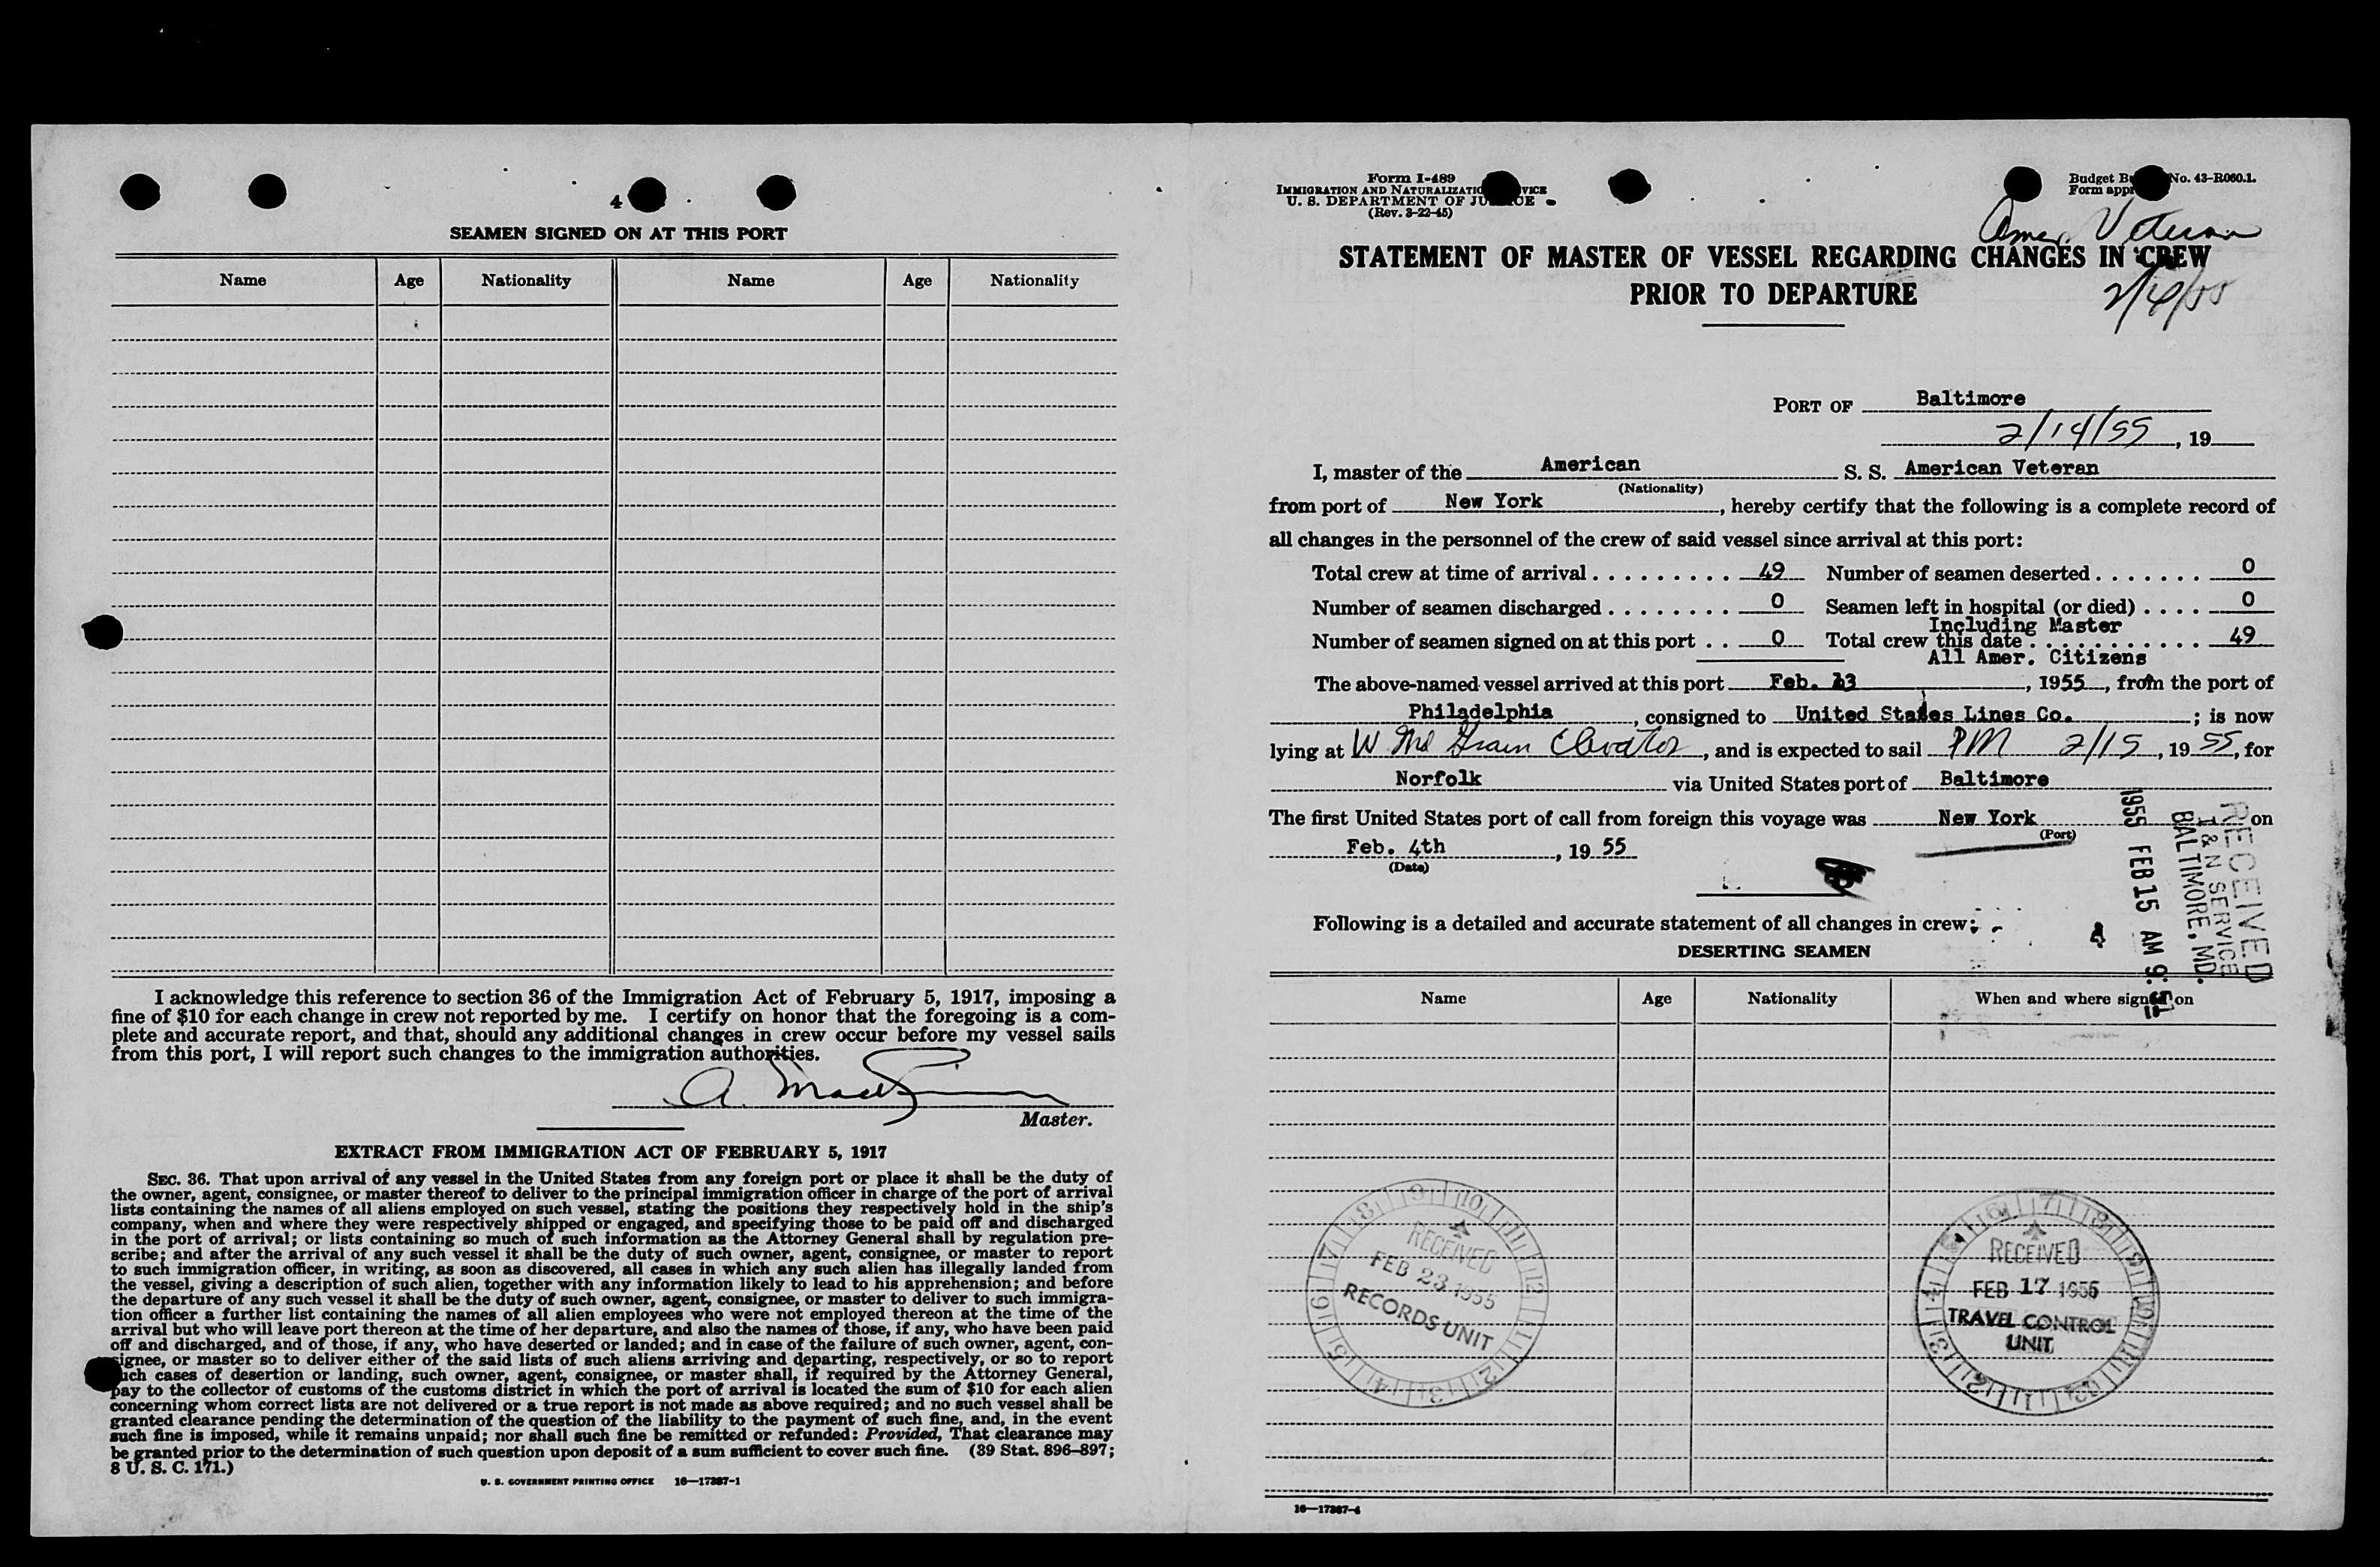 4
SEAMEN SIGNED ON AT THIS PORT
Name Age Nationality Name Age Nationality
I acknowledge this reference to section 36 of the Immigration Act of February 5, 1917, imposing a
fine of $10 for each change in crew not reported by me. I certify on honor that the foregoing is a com-
plete and accurate report, and that, should any additional changes in crew occur before my vessel sails
from this port, I will report such changes to the immigration authorities.
A.
Master.
EXTRACT FROM IMMIGRATION ACT OF FEBRUARY 5, 1917
SEC. 36. That upon arrival of any vessel in the United States from any foreign port or place it shall be the duty of
the owner, agent, consignee, or master thereof to deliver to the principal immigration officer in charge of the port of arrival
lists containing the names of all aliens employed on such vessel, stating the positions they respectively hold in the ship's
company, when and where they were respectively shipped or engaged, and specifying those to be paid off and discharged
in the port of arrival; or lists containing so much of such information as the Attorney General shall by regulation pre-
scribe; and after the arrival of any such vessel it shall be the duty of such owner, agent, consignee, or master to report
to such immigration officer, in writing, as soon as discovered, all cases in which any such alien has illegally landed from
the vessel, giving a description of such alien, together with any information likely to lead to his apprehension; and before
the departure of any such vessel it shall be the duty of such owner, agent, consignee, or master to deliver to such immigra-
tion officer a further list containing the names of all alien employees who were not employed thereon at the time of the
arrival but who will leave port thereon at the time of her departure, and also the names of those, if any, who have been paid
off and discharged, and of those, if any, who have deserted or landed; and in case of the failure of such owner, agent, con-
signee, or master so to deliver either of the said lists of such aliens arriving and departing, respectively, or so to report
such cases of desertion or landing, such owner, agent, consignee, or master shall, if required by the Attorney General,
pay to the collector of customs of the customs district in which the port of arrival is located the sum of $10 for each alien
concerning whom correct lists are not delivered or a true report is not made as above required; and no such vessel shall be
granted clearance pending the determination of the question of the liability to the payment of such fine, and, in the event
such fine is imposed, while it remains unpaid; nor shall such fine be remitted or refunded: Provided, That clearance may
be granted prior to the determination of such question upon deposit of a sum sufficient to cover such fine. (39 Stat. 896–897;
8 U. S. C. 171.)
U. S. GOVERNMENT PRINTING OFFICE 16—17387-1
Form I-489
IMMIGRATION AND NATURALIZATION SERVICE
U. S. DEPARTMENT OF JUSTICE
(Rev. 3-22-45)
Budget Bu No. 43-R060.1.
Form appr
Amer. Veteran
STATEMENT OF MASTER OF VESSEL REGARDING CHANGES IN CREW
PRIOR TO DEPARTURE
PORT OF Baltimore
2/14/55, 19
I, master of the American S. S. American Veteran
(Nationality)
from port of New York, hereby certify that the following is a complete record of
all changes in the personnel of the crew of said vessel since arrival at this port:
Total crew at time of arrival 49 Number of seamen deserted 0
Number of seamen discharged 0 Seamen left in hospital (or died) 0
Including Master
Number of seamen signed on at this port 0 Total crew this date 49
All Amer. Citizens
The above-named vessel arrived at this port Feb. 13, 1955, from the port of
Philadelphia, consigned to United States Lines Co.; is now
lying at W Md Grain Elevator, and is expected to sail PM 2/15, 1955, for
Norfolk via United States port of Baltimore
The first United States port of call from foreign this voyage was New York on
(Port)
Feb. 4th, 1955
(Date)
RECEIVED
I & N SERVICE
BALTIMORE, MD.
1955 FEB 15 AM 9:51
Following is a detailed and accurate statement of all changes in crew:
DESERTING SEAMEN
Name Age Nationality When and where signed on
RECEIVED
FEB 23 1955
RECORDS UNIT
RECEIVED
FEB 17 1955
TRAVEL CONTROL
UNIT
16—17387-4